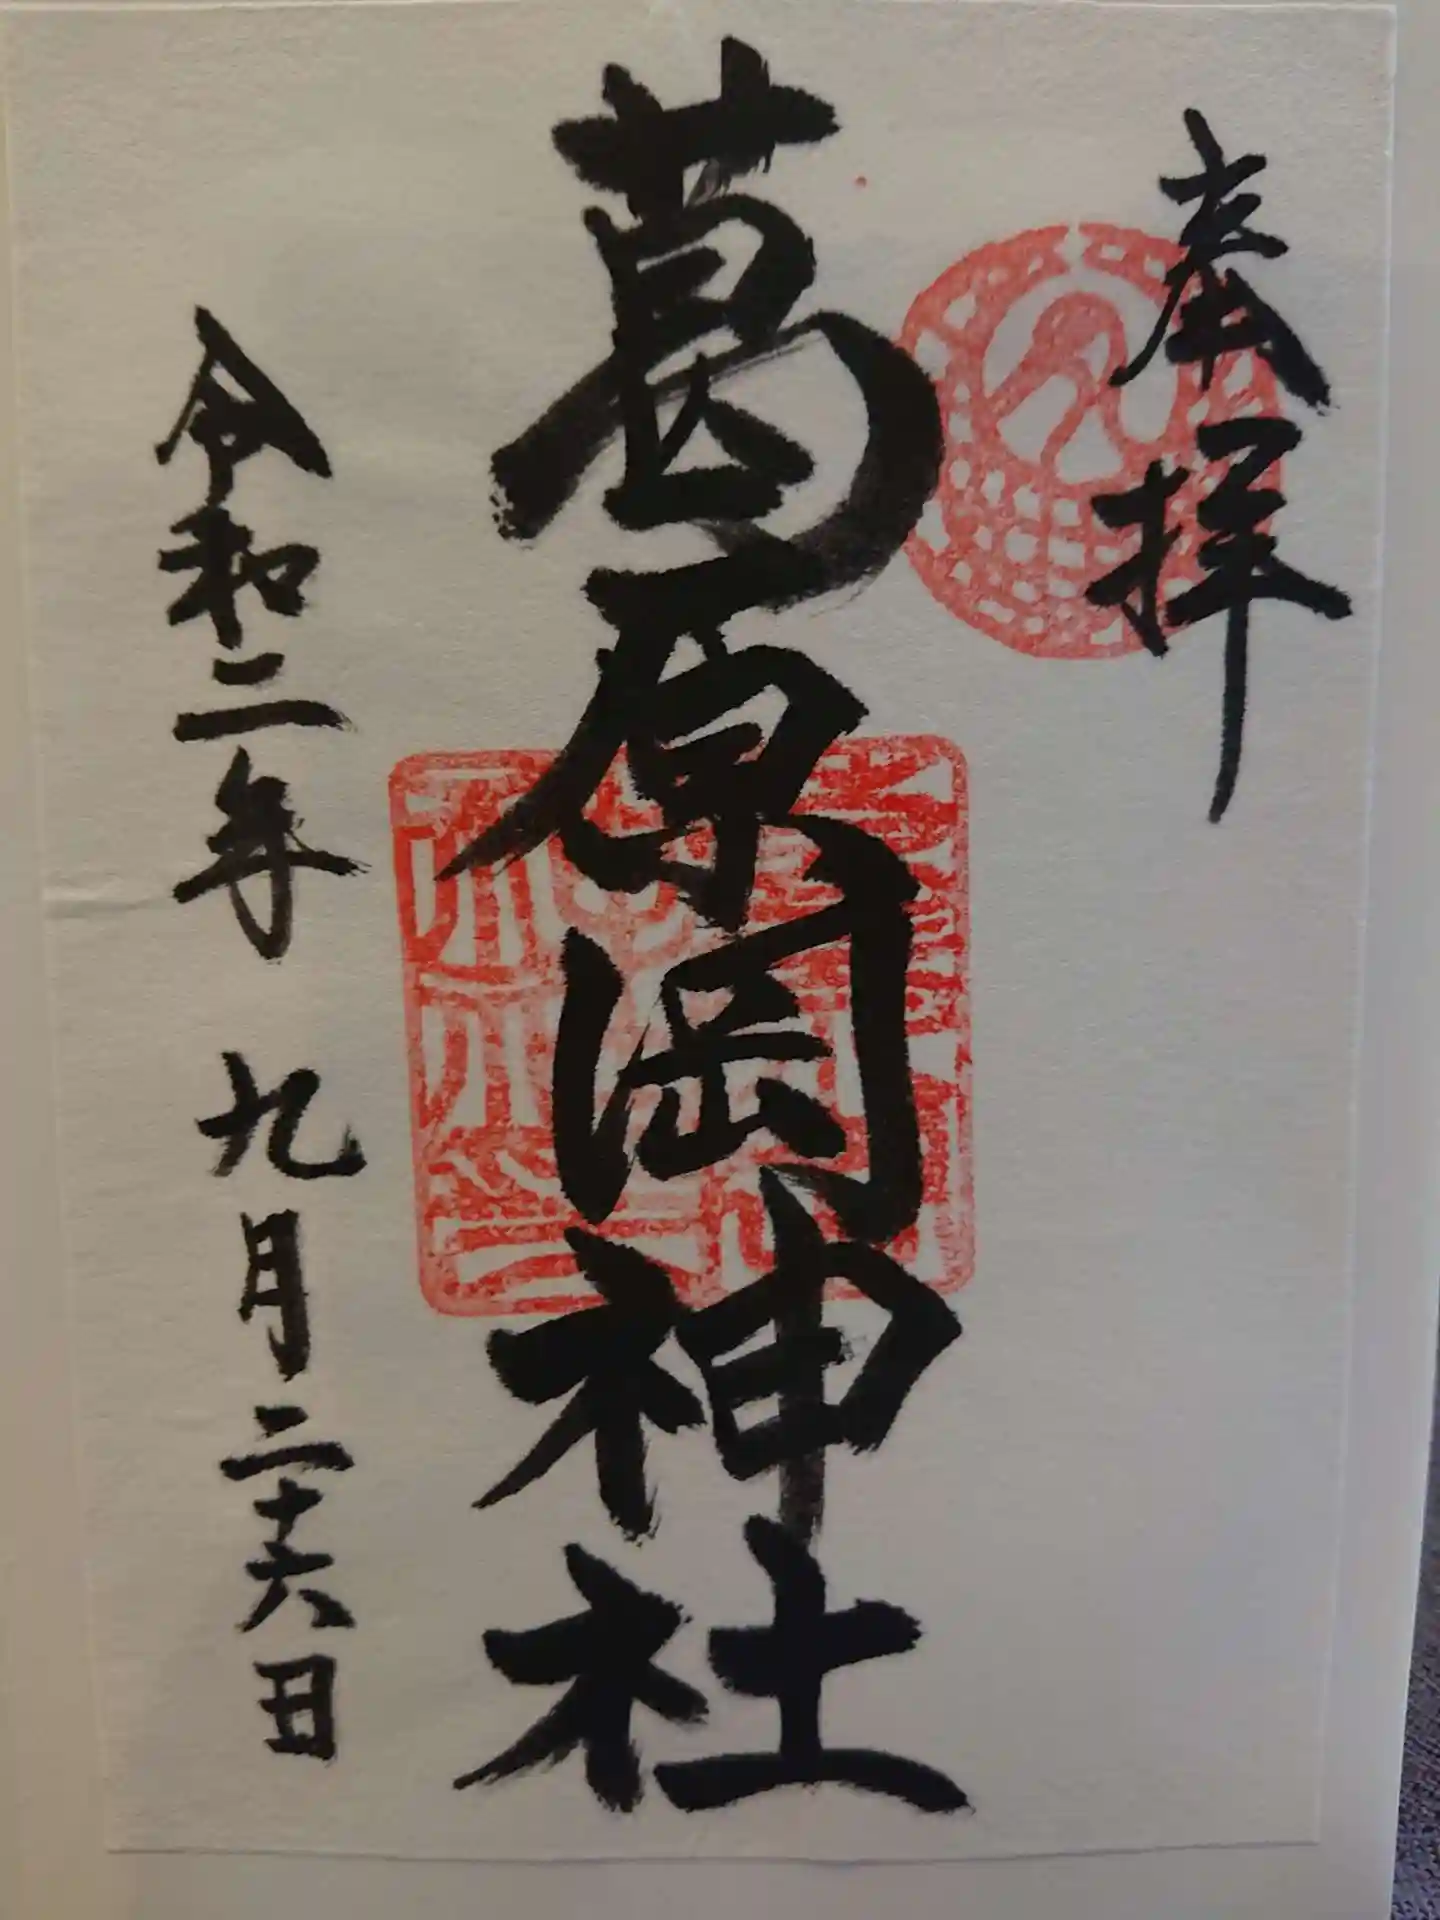 奉拝
葛原岡神社
令和二年 九月二十六日